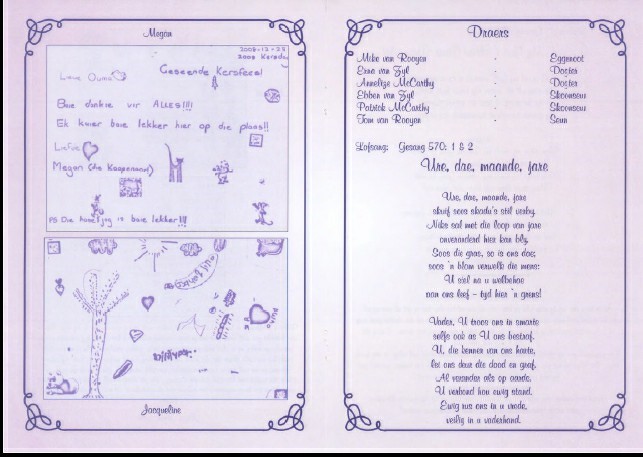 Megan
2008-12-25
Liewe Ouma
Geseende Kersfees!
Baie dankie vir ALLES!!!
Ek kuier baie lekker hier op die plaas!!
Liefde
Megan (die
PS Die is baie lekker!!!
Jacqueline
Draers
Mike van Rooyen : Eggenoot
Erna van Zyl : Dogter
Annelize McCarthy : Dogter
Ebben van Zyl : Skoonseun
Patrick McCarthy : Skoonseun
Tom van Rooyen : Seun
Lofsang: Gesang 570: 1 & 2
Ure, dae, maande, jare
Ure, dae, maande, jare
skuif soos skadu's stil verby.
Niks sal met die loop van jare
onveranderd hier kan bly.
Soos die gras, so is ons dae;
soos 'n blom verwelk die mens:
U stel na u welbehae
aan ons leef - tyd hier 'n grens!
Vader, U troos ons in smarte
selfs ook as U ons bestraf.
U, die kenner van ons harte,
lei ons deur die dood en graf.
Al verander als op aarde,
U verbond hou ewig stand.
Ewig rus ons in u vrede,
veilig in u vaderhand.